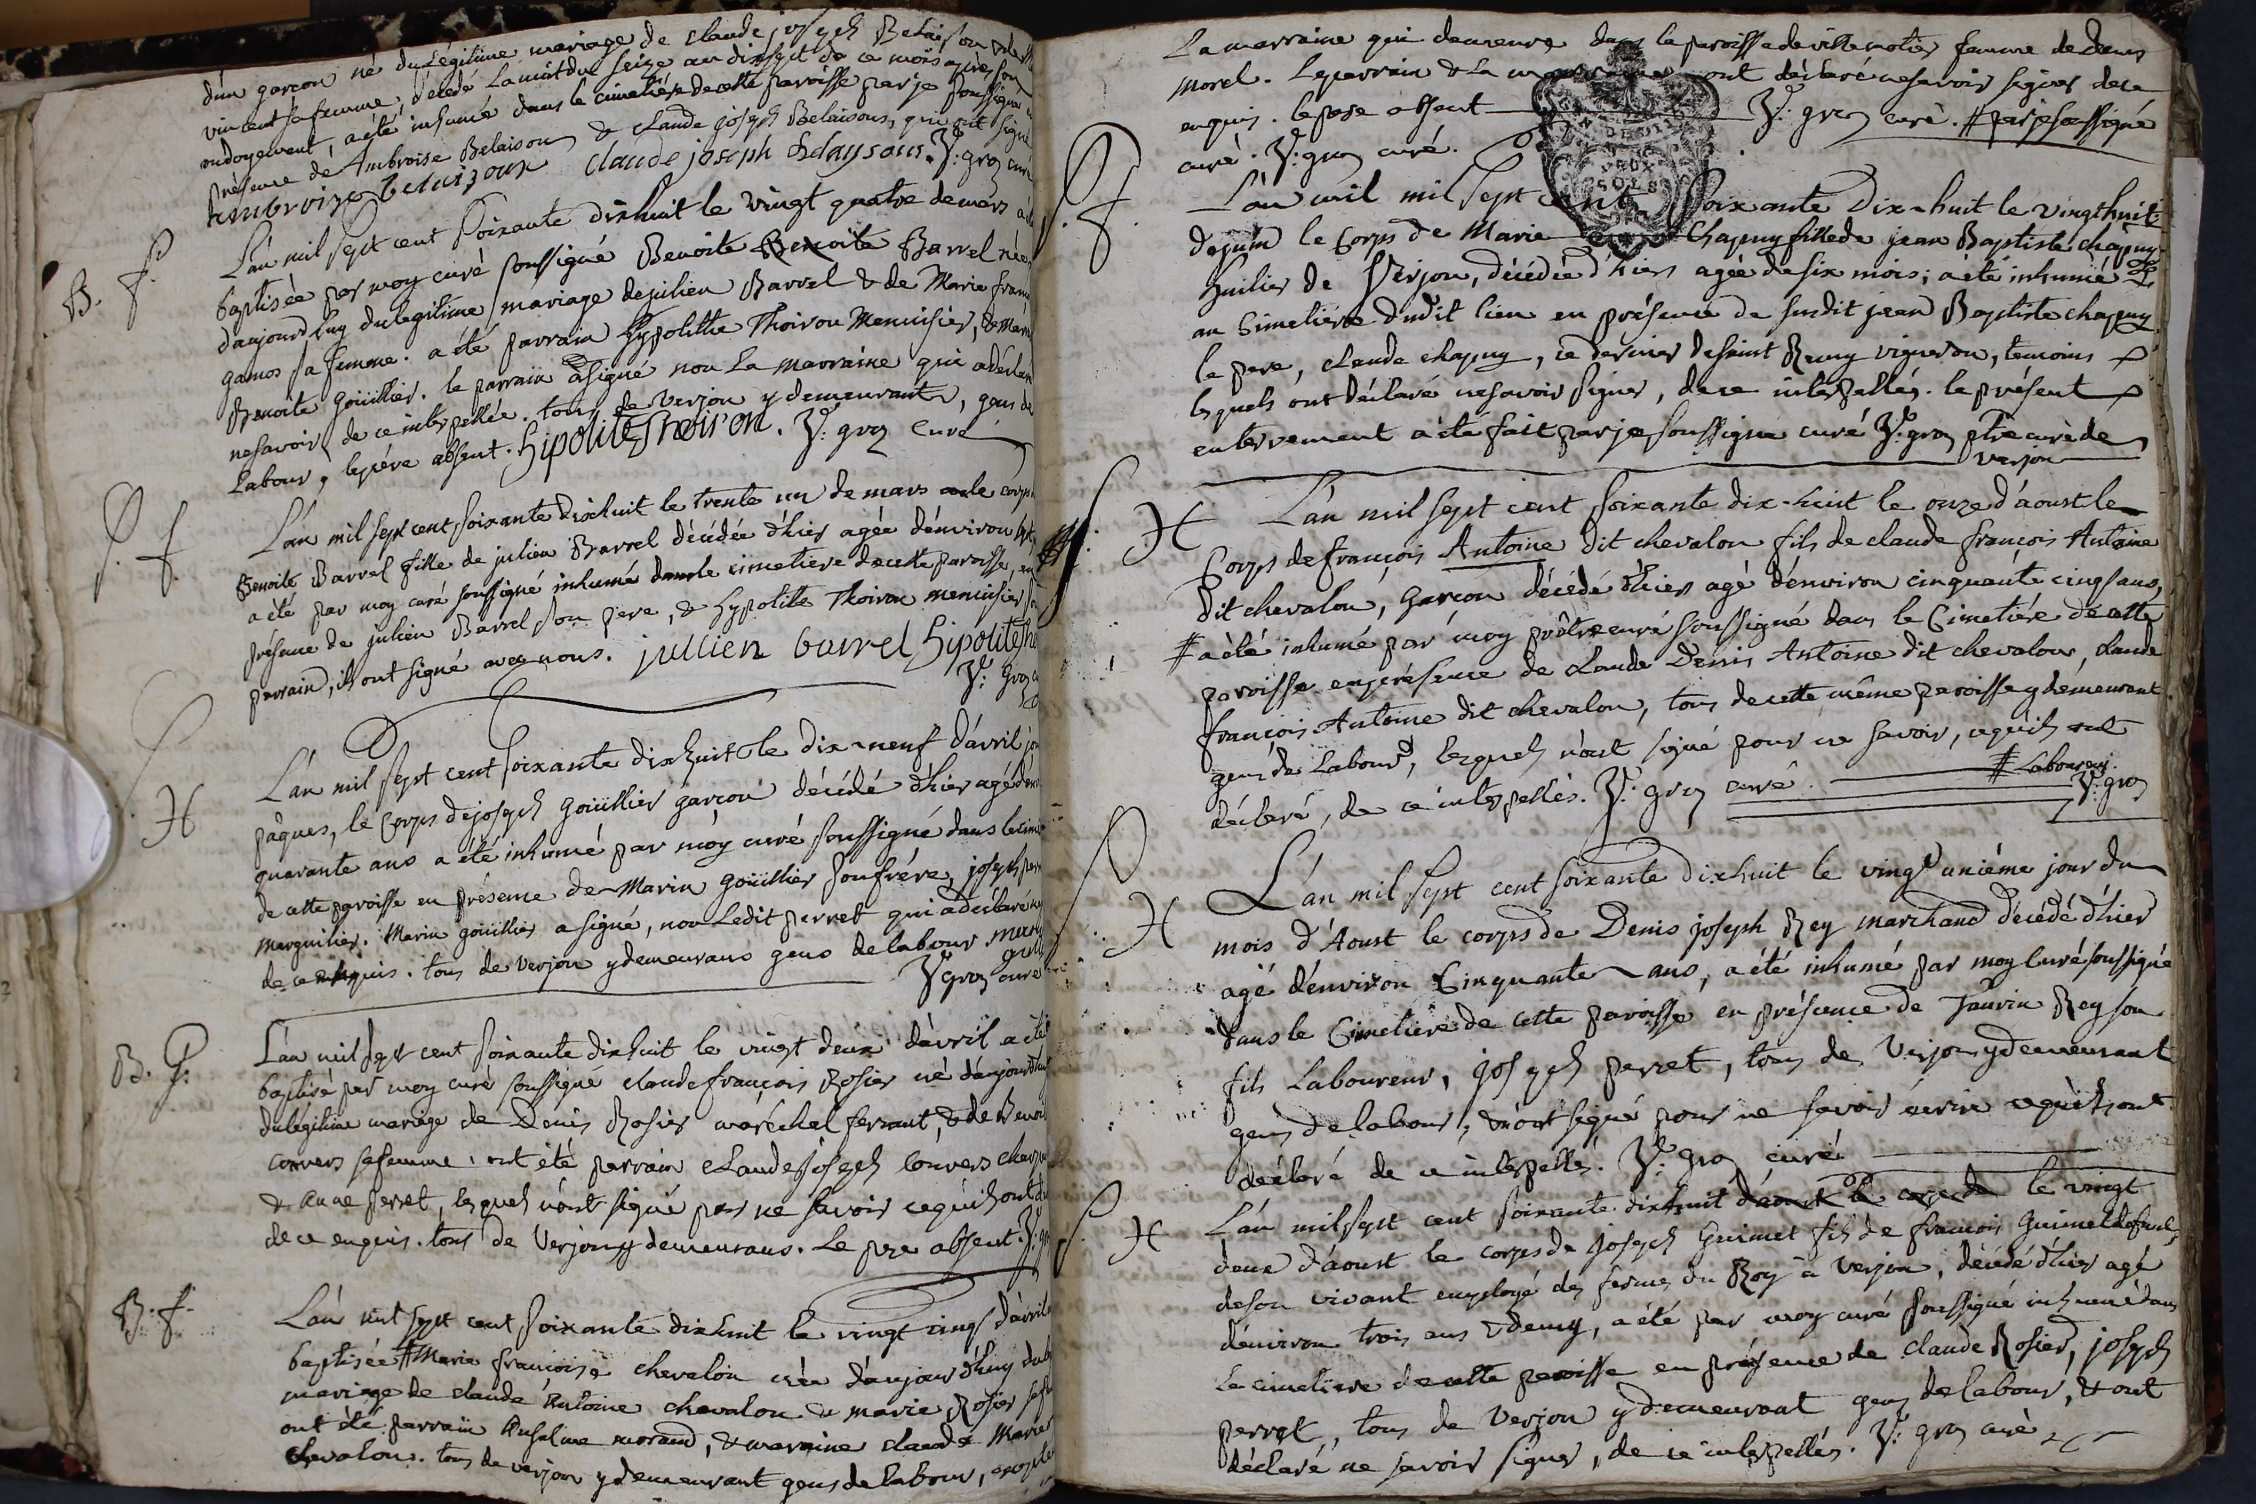 d'un garçon né du légitime mariage de claude joseph Belaison & de
vincent sa femme, décédé la nuit du seize au dixsept de ce mois apres son
ondoyement, a été inhumé dans le cimetière de cette paroisse par je soussigné
présence de Ambroise Belaison & claude joseph Belaisons, qui ont signé
ambroize belaizon claude joseph belaysons. Y: gros curé
B. f. L'an mil sept cent soixante dixhuit le vingt quatre de mars a été
baptisée par moy curé soussigné Benoite Benoite Barrel née
d'aujourd'huy du legitime mariage de julien Barrel & de Marie françoise
gamos sa femme. a été parrain hypolithe Thoiron Menuisier, & Marraine
Benoite goüillier. le parrain a signé non la marraine qui a déclaré
ne savoir de ce interpellée. tous de verjon y demeurants, gens de
labour, le père absent. hipolite Thoiron. Y: gros curé
S. f. L'an mil sept cent soixante dixhuit le trente un de mars le corps
Benoite Barrel fille de julien Barrel décédée d'hier agée d'environ sept
a été par moy curé soussigné inhumé dans le cimetiere de cette paroisse, en
présence de julien Barrel son pere, & hypolite Thoiron menuisier son
parrain, ils ont signé avec nous. jullien barrel hipolite tho
Y: Gros c
S. H L'an mil sept cent soixante dixhuit le dix-neuf d'avril jour
pâques, le corps de joseph goüillier garçon décédé d'hier agé d'env
quarante ans a été inhumé par moy curé soussigné dans le cime
de cette paroisse en présence de Marin goüillier son frére, joseph perr
marguilier. Marin goüillier a signé, non ledit perret qui a declaré ne
de ce enquis. tous de Verjon y demeurans gens de labour marin
Y gros curé
B. G. L'an mil sept cent soixante dixhuit le vingt deux d'avril a été
baptisé par moy curé soussigné claude françois Rosier né d'aujourd'huy
du legitime mariage de Denis Rosier maréchal ferrant, & de Benoite
convers sa femme. ont été parrain claude joseph convers charp
& anne perret, lesquels n'ont signé pour ne savoir ce qu'ils ont d
de ce enquis. tous de Verjon y demeurans. Le pere absent. Y: gr
B. f. L'an mil sept cent soixante dixhuit le vingt cinq d'avril
baptisée # Marie françoise chevalon née d'aujourd'huy du leg
mariage de claude Antoine chevalon & marie Rosier sa fe
ont été parrain Anselme morand, & marraine claude Marie
chevalon. tous de verjon y demeurant gens de labour,
La marraine qui demeure dans la paroisse de villemotier femme de denis
morel. Le parrain & la marraine ont déclaré ne savoir signer de ce
enquis. le pere absent Y: gros curé. # par je soussigné
curé. Y: gros curé.
DEUX SOLS
S. f. L'an mil mil sept cent soixante Dix-huit le vingthuit
de juin le corps de Marie Chapuy fille de jean Baptiste chapuy
huilier de Verjon, décédée d'hier agée de six mois, a été inhumé
au cimetière dudit lieu en présence de susdit jean Baptiste chapuy
le pere, claude chapuy, ce dernier de saint Remy vigneron, temoins
lesquels ont déclaré ne savoir signer, de ce interpellés. le présent
enterrement a été fait par je soussigné curé Y: gros ptre curé de
verjon
S. H L'an mil sept cent soixante dix-huit le onze d'aoust le
Corps de françois Antoine dit chevalon fils de claude françois Antoine
dit chevalon, garçon décédé d'hier agé d'environ cinquante cinq ans,
# a été inhumé par moy prêtre curé soussigné dans le Cimetière de cette
paroisse en présence de claude Denis Antoine dit chevalon, claude
françois Antoine dit chevalon, tous de cette même paroisse y demeurant
gens de labour, lesquels n'ont signé pour ne savoir, ce qu'ils ont
déclaré, de ce interpellés. Y: gros curé. # Laboureur.
Y: gros
S. H L'an mil sept cent soixante dixhuit le vingt uniéme jour du
mois d'Aoust le corps de Denis joseph Rey marchand décédé d'hier
agé d'environ Cinquante ans, a été inhumé par moy curé soussigné
dans le Cimetiere de cette paroisse en présence de Taurin Rey son
fils Laboureur, joseph perret, tous de Verjon y demeurant
gens de labour, n'ont signé pour ne savoir écrire ce qu'ils ont
déclaré de ce interpellés. Y: gros curé
S. H L'an mil sept cent soixante dixhuit d'aoust le corps de le vingt
deux d'aoust le corps de joseph Guimet fils de françois Guimet defunt
de son vivant employé des fermes du Roy à Verjon, décédé d'hier agé
d'environ trois ans & demy, a été par moy curé soussigné inhumé dans
le cimetiere de cette paroisse en présence de claude Rosier, joseph
perret, tous de Verjon y demeurant gens de labour, & ont
déclaré ne savoir signer, de ce interpellés. Y: gros curé